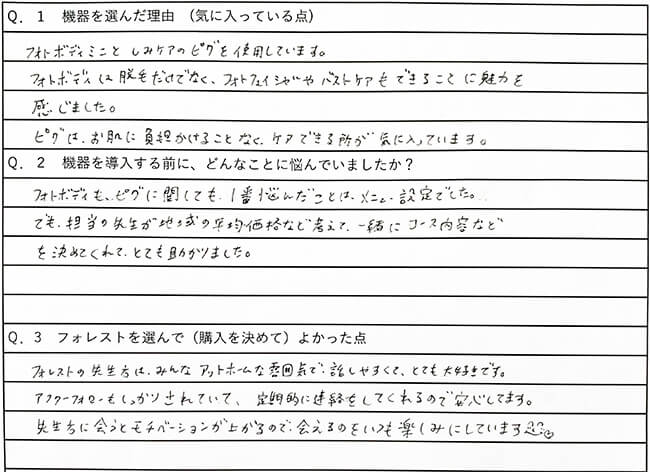 Q. 1 機器を選んだ理由 (気に入っている点)
フォトボディミニと しみケアのピグを使用しています。
フォトボディは脱毛だけでなく、フォトフェイシャルや バストケアも できることに魅力を
感じました。
ピグは、お肌に負担かけることなく、ケアできる所が気に入っています。
Q. 2 機器を導入する前に、どんなことに悩んでいましたか?
フォトボディも、ピグに関しても、1番悩んだことは、メニュー設定でした。
でも、担当の先生が地域の平均価格など考えて、一緒にコース内容など
を決めてくれて、とても助かりました。
Q. 3 フォレストを選んで(購入を決めて)よかった点
フォレストの先生方は、みんなアットホームな雰囲気で、話しやすくて、とても大好きです。
アフターフォローもしっかりされていて、定期的に連絡をしてくれるので安心してます。
先生方に会うとモチベーションが上がるので、会えるのをいつも楽しみにしています